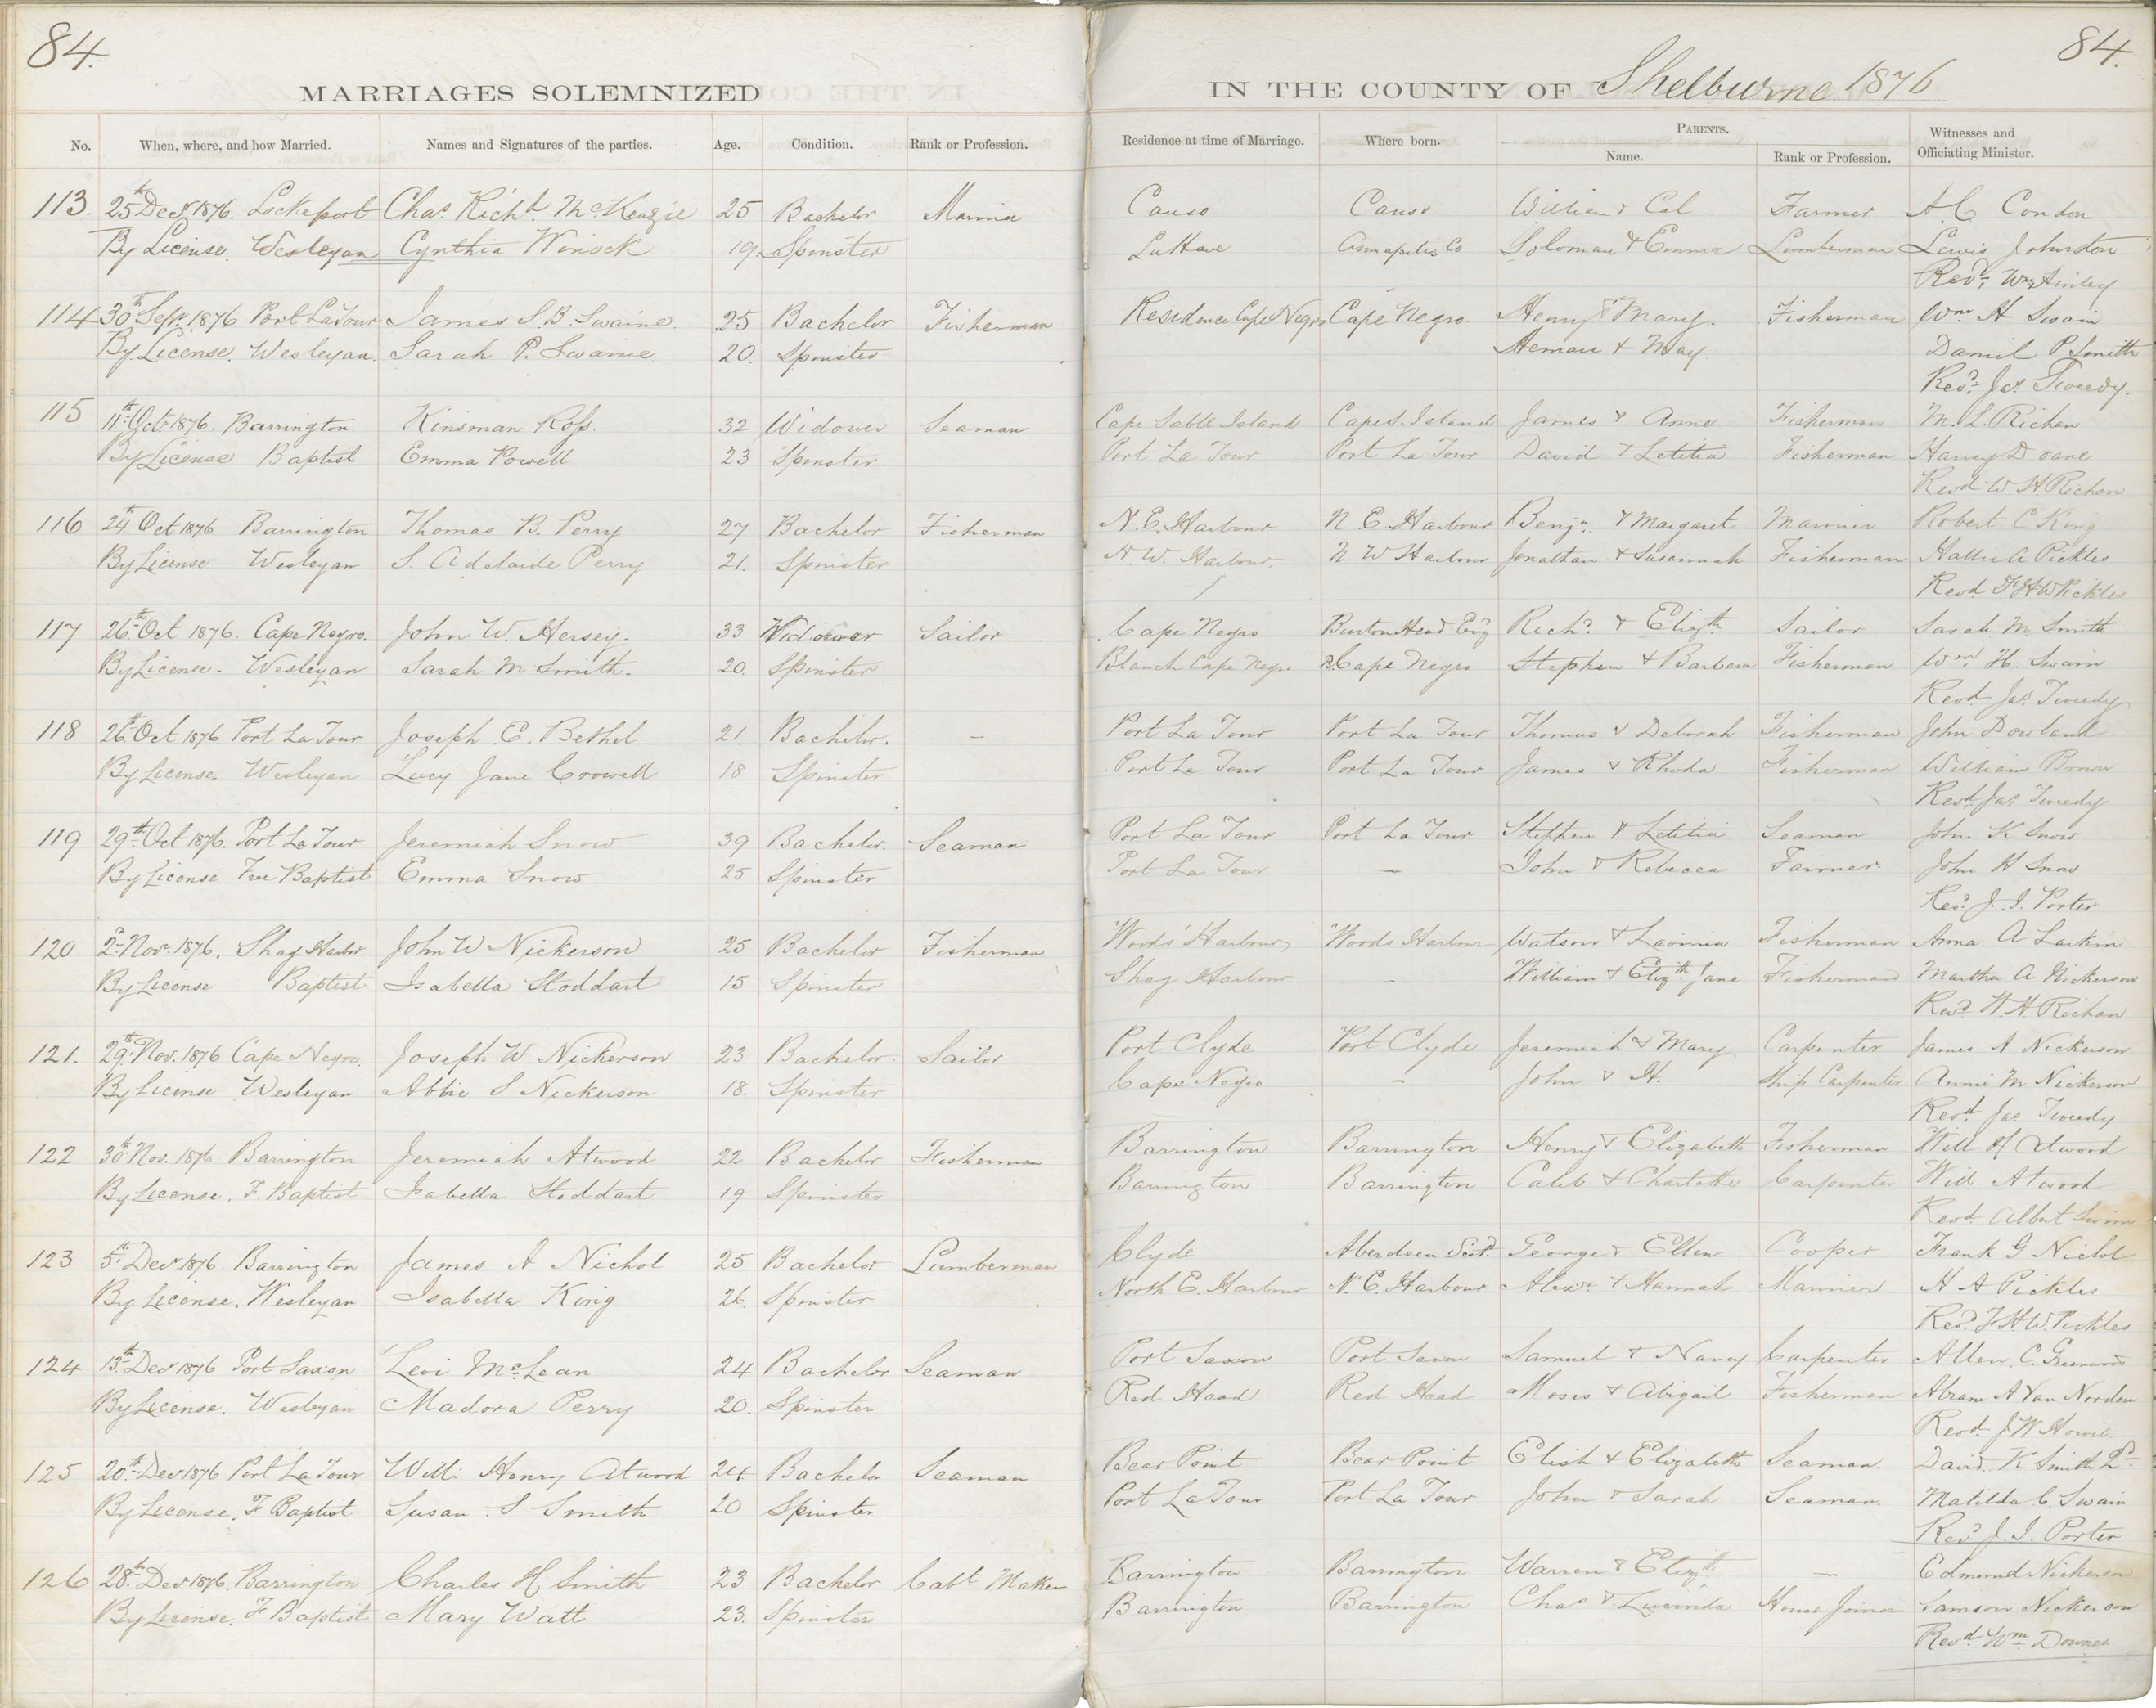 84.
84.
MARRIAGES SOLEMNIZED
IN THE COUNTY OF Shelburne 1876
No. When, where, and how Married. Names and Signatures of the parties. Age. Condition. Rank or Profession. Residence at time of Marriage. Where born. PARENTS. Name. Rank or Profession. Witnesses and Officiating Minister.
113. 25th Decr 1876. Lockeport Chas Richd McKenzie 25 Bachelor Mariner Causo Causo William & Cal Farmer A C Condon
By License. Wesleyan Cynthia Winock 19. Spinster LaHave Annapolis Co Soloman & Emma Lumberman Lewis Johnston
Revd. Wm Ainley
114 30th Sept. 1876 Port LaTour James S. B. Swaine. 25 Bachelor Fisherman Residence Cape Negro Cape Negro. Henry & Mary. Fisherman Wm H Swain
By License. Wesleyan. Sarah P. Swaine. 20. Spinster Heman & May. Daniel P Smith
Revd. Jas Tweedy.
115 11th Oct 1876. Barrington. Kinsman Ross. 32 Widower Seaman Cape Sable Island Cape S. Island James & Anne Fisherman M. L. Richan
By License Baptist Emma Powell 23 Spinster Port La Tour Port La Tour David & Letitia Fisherman Harvey Doane
Revd W H Richan
116 24th Oct 1876 Barrington Thomas B. Perry 27 Bachelor Fisherman N. E. Harbour N E Harbour Benjn. & Margaret Mariner Robert C King
By License Wesleyan S. Adelaide Perry 21. Spinster N. W. Harbour. N W Harbour Jonathan & Susannah Fisherman Hattie A Pickles
Revd FHW Pickles
117 26th Oct 1876. Cape Negro. John W. Hersey. 33 Widower Sailor Cape Negro Burton Head Eng Richd. & Elizth. Sailor Sarah M Smith
By License. Wesleyan Sarah M Smith. 20. Spinster Blanch Cape Negro Cape Negro Stephen & Barbara Fisherman Wm H. Swain
Revd Jas. Tweedy
118 26th Oct 1876. Port La Tour Joseph E. Bethel 21. Bachelor. – Port La Tour Port La Tour Thomas & Deborah Fisherman John Dowland
By License. Wesleyan Lucy Jane Crowell 18 Spinster Port La Tour Port La Tour James & Rhoda Fisherman William Brown
Revd. Jas Tweedy
119 29th Oct 1876. Port La Tour Jeremiah Snow 39 Bachelor. Seaman Port La Tour Port La Tour Stephen & Letitia Seaman John K Snow
By License Free Baptist Emma Snow 25 Spinster Port La Tour – John & Rebecca Farmer John H Snow
Revd. J. I. Porter
120 2d Nov. 1876. Shag Harbor John W Nickerson 25 Bachelor Fisherman Woods' Harbour Woods Harbour Watson & Lavinia Fisherman Anna A Larkin
By License Baptist Isabella Stoddart 15 Spinster Shag Harbour – William & Elizth Jane Fisherman Martha A Nickerson
Revd. W. H. Richan
121. 29th Nov. 1876 Cape Negro. Joseph W Nickerson 23 Bachelor. Sailor Port Clyde Port Clyde Jeremiah & Mary Carpenter James A Nickerson
By License Wesleyan Abbie S Nickerson 18. Spinster Cape Negro – John & H. Ship Carpenter Annie M Nickerson
Revd. Jas Tweedy
122 30th Nov. 1876 Barrington Jeremiah Atwood 22 Bachelor Fisherman Barrington Barrington Henry & Elizabeth Fisherman Will H Atwood
By License. F. Baptist Isabella Stoddart 19 Spinster Barrington Barrington Caleb & Charlotte Carpenter Will Atwood
Revd. Albert Swim
123 5th Decr 1876. Barrington James A Nichol 25 Bachelor Lumberman Clyde Aberdeen Scotd. George & Ellen Cooper Frank G Nichol
By License. Wesleyan Isabella King 26. Spinster North E. Harbour N. E. Harbour Alexr. & Hannah Mariner H A Pickles
Revd. FHW. Pickles
124 13th Decr 1876 Port Saxon Levi McLean 24 Bachelor Seaman Port Saxon Port Saxon Samuel & Nancy Carpenter Allen C. Greenwood
By License. Wesleyan Madora Perry 20. Spinster Red Head Red Head Moses & Abigail Fisherman Abram A Van Norden
Revd. J W Howie
125 20th Decr 1876 Port La Tour Will: Henry Atwood 24. Bachelor Seaman Bear Point Bear Point Elish & Elizabeth Seaman. David K Smith 2d
By License. F Baptist Susan S Smith 20 Spinster Port La Tour Port La Tour John & Sarah Seaman. Matilda C. Swain
Revd. J. I. Porter
126 28th Decr 1876. Barrington Charles H Smith 23 Bachelor Cabt Maker Barrington Barrington Warren & Elizth – Edmund Nickerson
By License. F Baptist Mary Watt 23. Spinster Barrington Barrington Chas & Lucinda House Joiner Samson Nickerson
Revd. Wm Downes